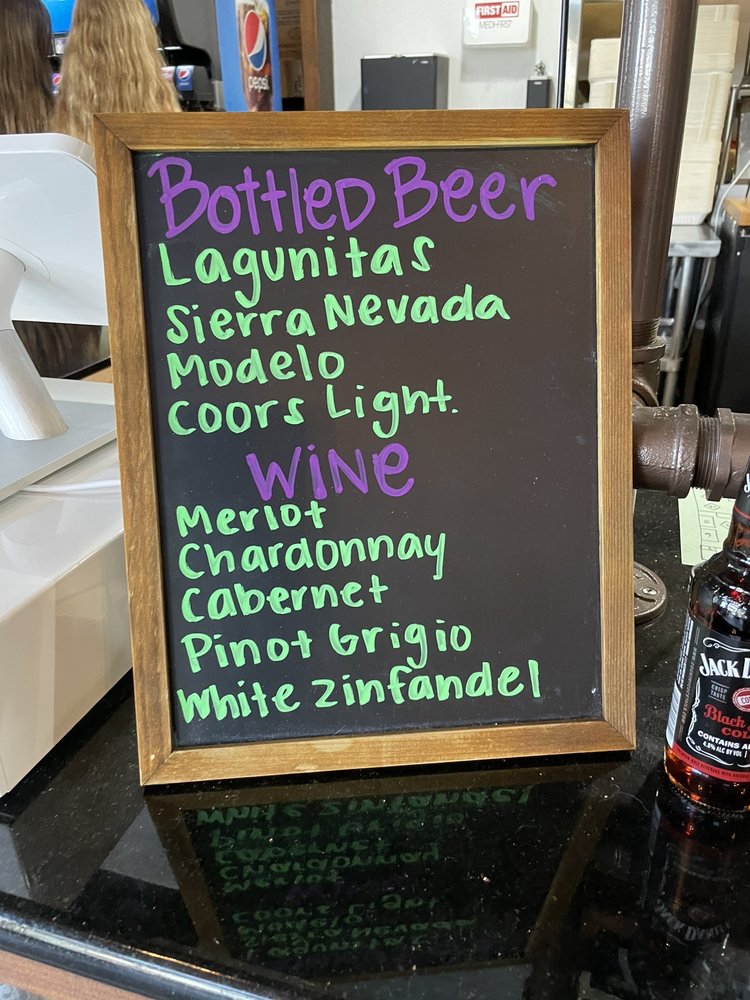 FIRST AID
MEDI-FIRST
pepsi
Bottled Beer
Lagunitas
Sierra Nevada
Modelo
Coors Light.
Wine
Merlot
Chardonnay
Cabernet
Pinot Grigio
White Zinfandel
JACK D
CRISP
TASTE
Black
COL
CONTAINS AL
4.8% ALC BY VOL